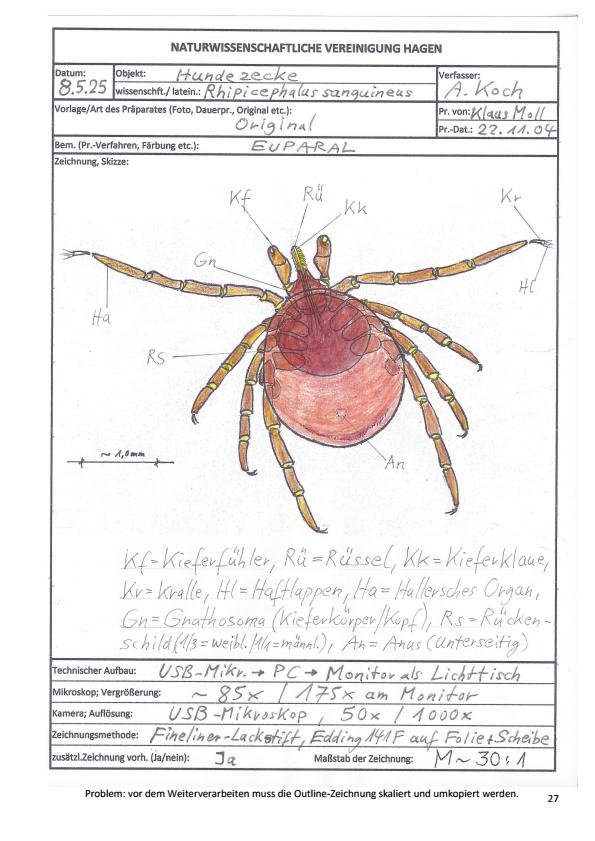 NATURWISSENSCHAFTLICHE VEREINIGUNG HAGEN
Datum: 8.5.25
Objekt: Hundezecke
wissenschft./ latein.: Rhipicephalus sanguineus
Verfasser: A. Koch
Vorlage/Art des Präparates (Foto, Dauerpr., Original etc.):
Original
Pr. von: Klaus Moll
Pr.-Dat.: 22.11.04
Bem. (Pr.-Verfahren, Färbung etc.): EUPARAL
Zeichnung, Skizze:
Kf
Rü
Kk
Kr
Gn
Hl
Ha
RS
~ 1,0mm
An
Kf=Kieferfühler, Rü=Rüssel, Kk=Kieferklaue,
Kr=Kralle, Hl=Haftlappen, Ha=Hallersches Organ,
Gn=Gnathosoma (Kieferkörper/Kopf), Rs=Rücken-
schild(1/3=weibl./1/1=männl.), An=Anus (Unterseitig)
Technischer Aufbau: USB-Mikr. → PC → Monitor als Lichttisch
Mikroskop; Vergrößerung: ~ 85x / 175x am Monitor
Kamera; Auflösung: USB-Mikroskop, 50x / 1000x
Zeichnungsmethode: Fineliner-Lackstift, Edding 141F auf Folie+Scheibe
zusätzl.Zeichnung vorh. (Ja/nein): Ja
Maßstab der Zeichnung: M~30:1
Problem: vor dem Weiterverarbeiten muss die Outline-Zeichnung skaliert und umkopiert werden.
27